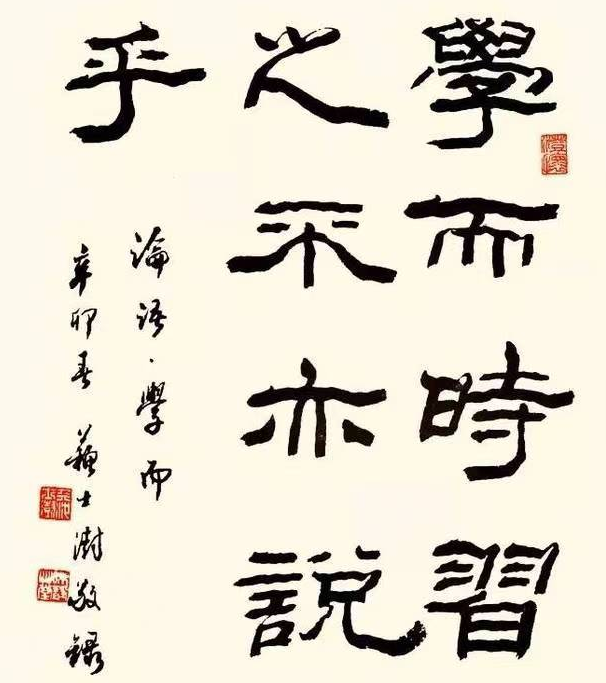 學而時習
之不亦說
乎
論語·學而
辛卯春蘇士澍敬錄